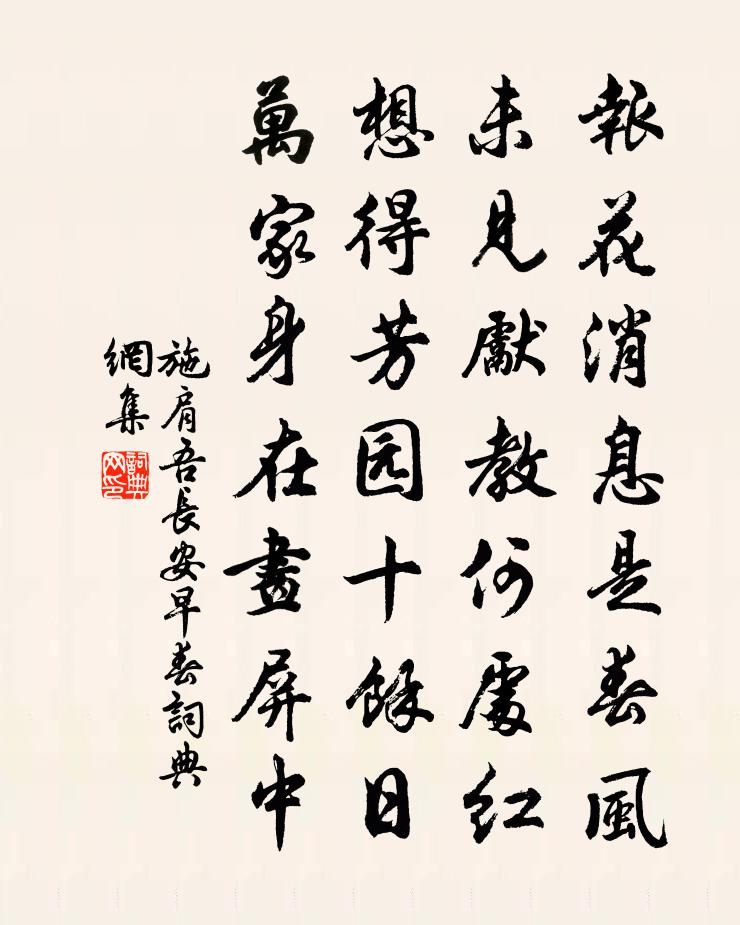 報花消息是春風
未見獻教何處紅
想得芳园十餘日
萬家身在畫屏中
施肩吾長安早春詞典
網集
詞典
网印